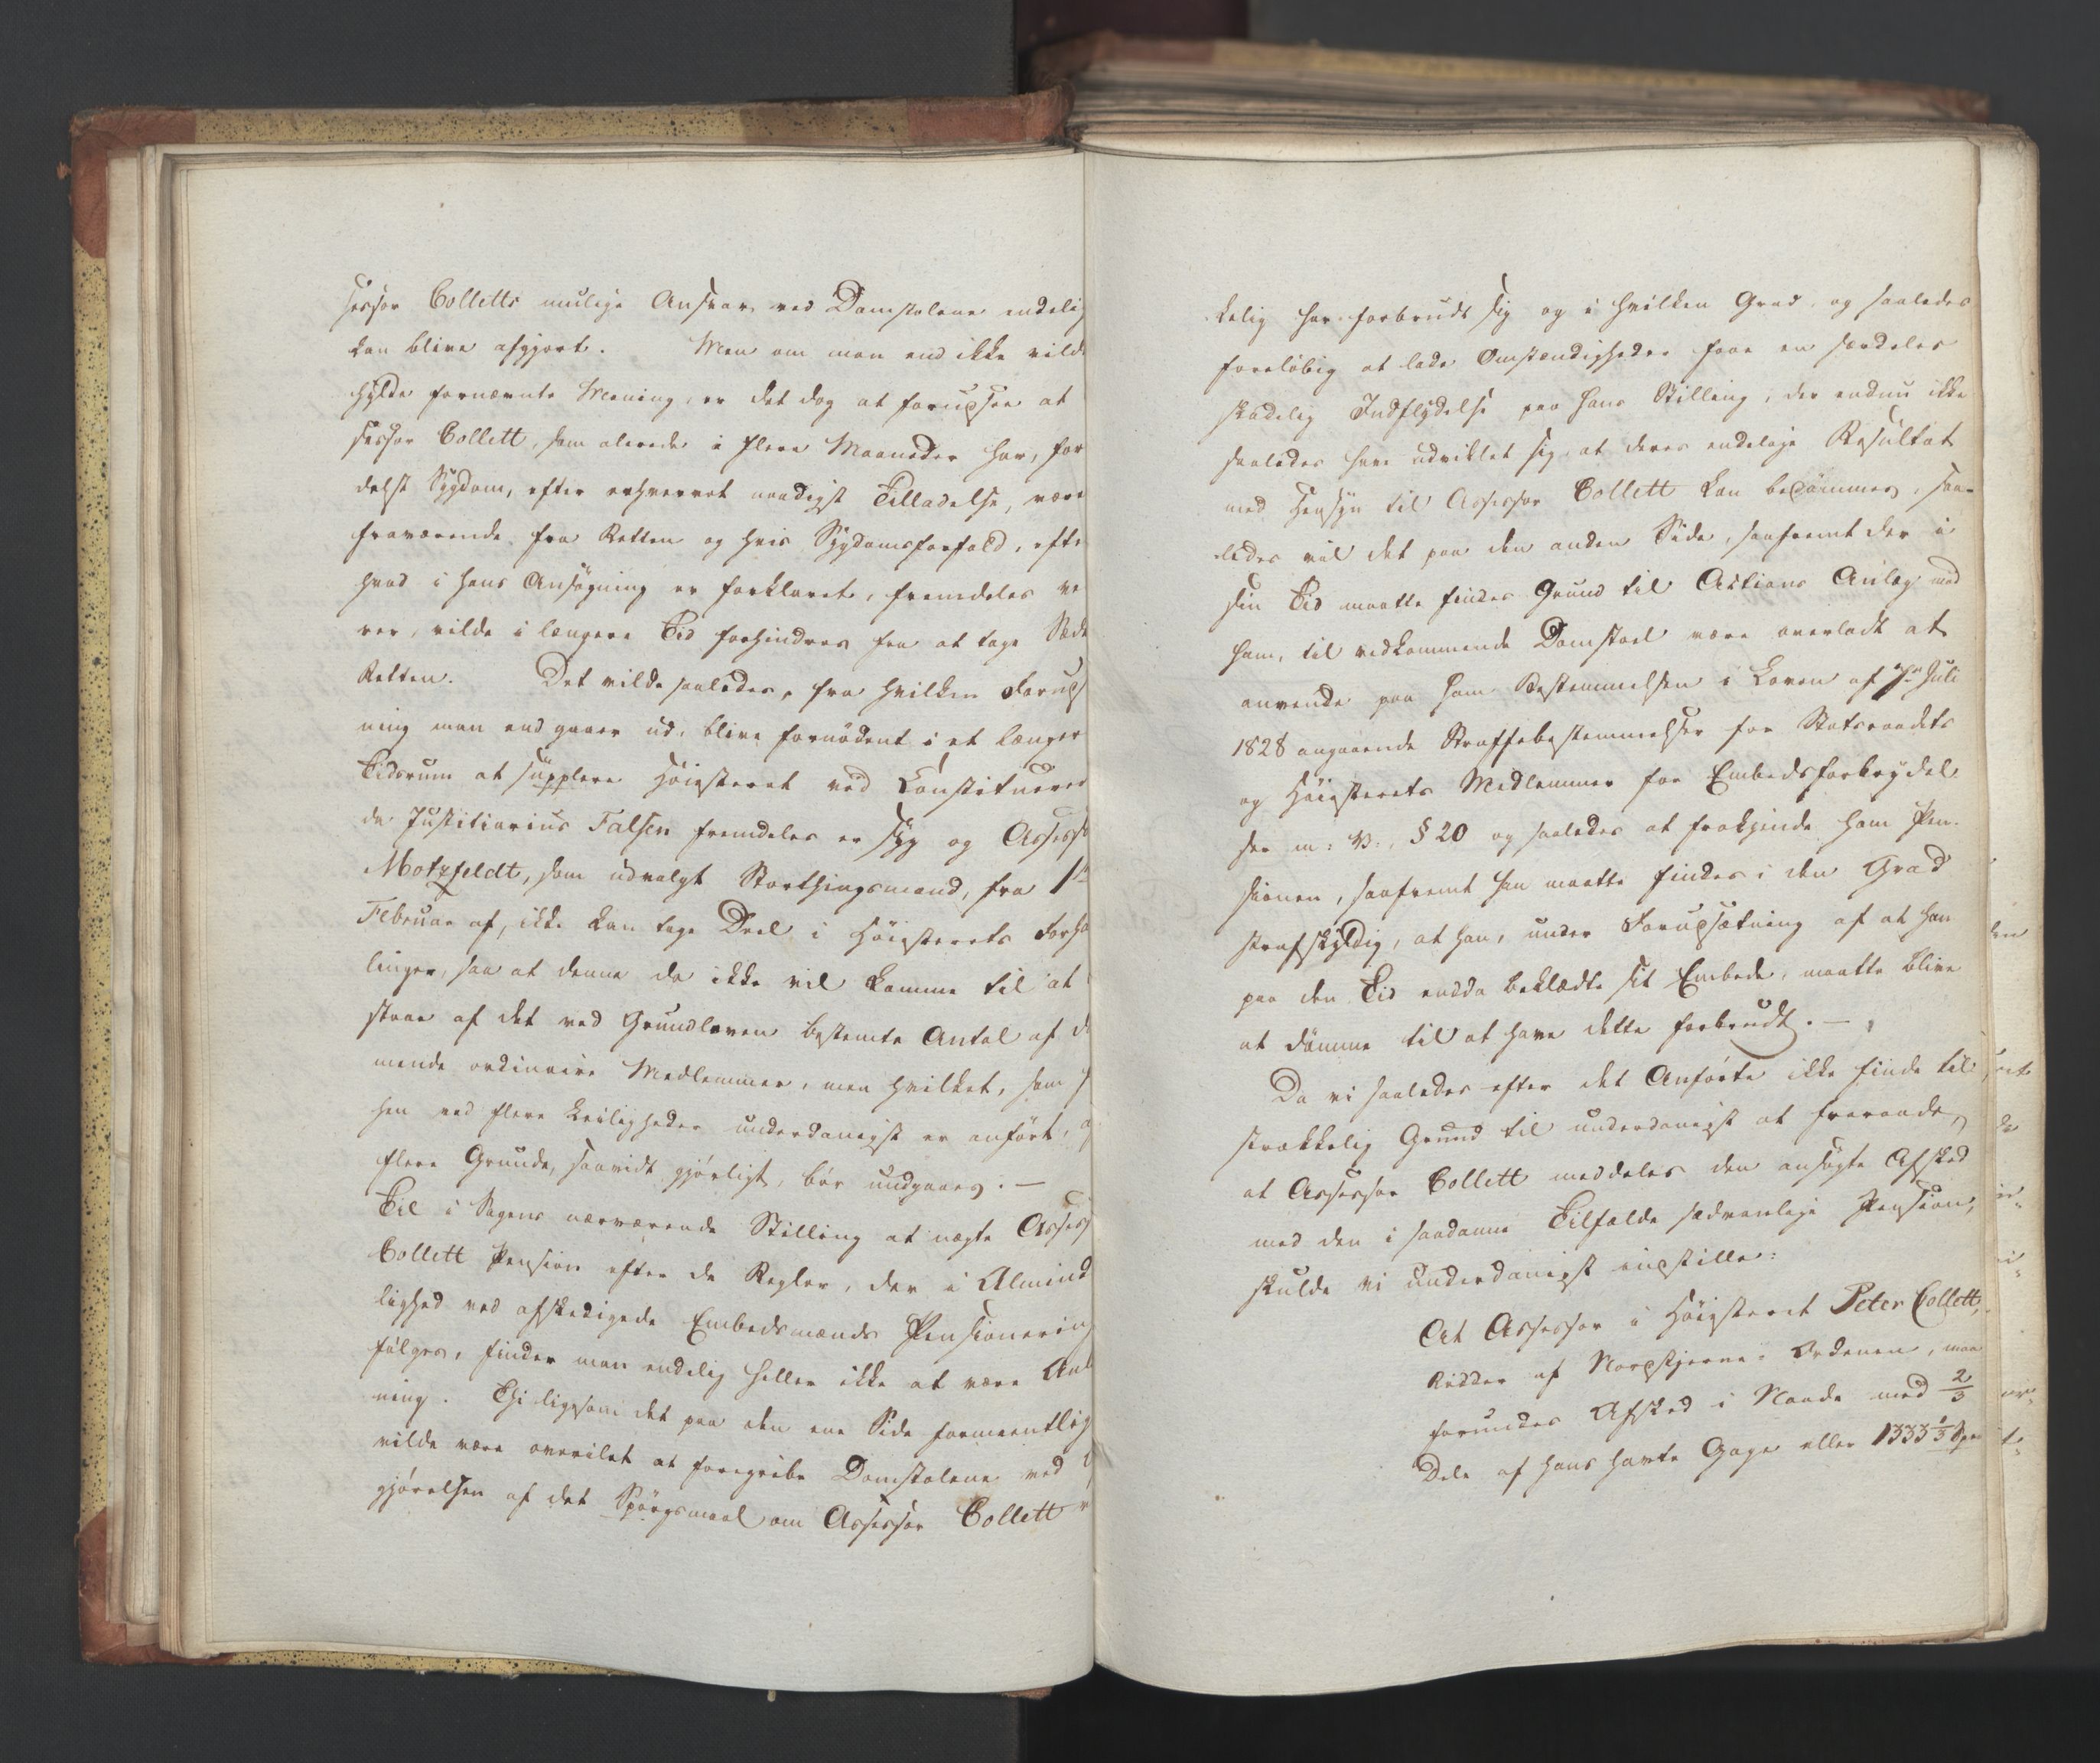 sessor Colletts mulige Ansvar ved Domstolene endelig
kan blive afgjort. Men om man end ikke vilde
hylde fornævnte Mening, er det dog at forudsee at
sessor Collett, som allerede i flere Maaneder har, for
delst Sygdom, efter erhvervet naadigst Tilladelse, være
fraværende fra Retten og hvis Sygdomsforfald, efte
hvad i hans Ansøgning er forklaret, fremdeles ve
rer, vilde i længere Tid forhindres fra at tage Sæde
Retten. Det vilde saaledes, fra hvilken Foruds
ning man end gaaer ud, blive fornødent i et længer
Tidsrum at supplere Høiesteret ved Constituered
da Justitiarius Falsen fremdeles er syg og Assess
Motzfeldt, som udvalgt Storthingsmand, fra 1ste
Februar af, ikke kan tage Deel i Høiesterets Forha
linger, saa at denne da ikke vil komme til at
staae af det ved Grundloven bestemte Antal af d
mende ordinaire Medlemmer, men hvilket, som
hen ved flere Leiligheder underdanigst er anført, a
flere Grunde, saavidt gjørligt, bør undgaaes. —
Til i Sagens nærværende Stilling at nægte Assess
Collett Pension efter de Regler, der i Almind
lighed ved afskedigede Embedsmænds Pensionering
følges, finder man endelig heller ikke at være Anl
ning. Thi ligesom det paa den ene Side formeentlig
vilde være overilet at foregribe Domstolene ved
gjørelsen af det Spørgsmaal om Assessor Collett v
kelig har forbrudt sig og i hvilken Grad, og saaledes
foreløbig at lade Omstændigheder faae en særdeles
skadelig Indflydelse paa hans Stilling, der endnu ikke
saaledes have udviklet sig, at deres endelige Resultat
med Hensyn til Assessor Collett kan bedømmes, saa-
ledes vil det paa den anden Side, saafremt der i
sin Tid maatte findes Grund til Actions Anlæg mod
ham, til vedkommende Domstoel være overladt at
anvende paa ham Bestemmelsen i Loven af 7de Juli
1828 angaaende Straffebestemmelser for Statsraadets
og Høiesterets Medlemmer for Embedsforbrydel
ser m: V:, § 20 og saaledes at frakjende ham Pen-
sionen, saafremt han maatte findes i den Grad
strafskyldig, at han, under Forudsætning af at han
paa den Tid endda beklædte sit Embede, maatte blive
at dømme til at have dette forbrudt. —
Da vi saaledes efter det Anførte ikke finde til
strækkelig Grund til underdanigst at fraraade,
at Assessor Collett meddeles den ansøgte Afsked
med den i saadanne Tilfælde sædvanlige Pension,
skulde vi underdanigst indstille:
At Assessor i Høiesteret Peter Collett,
Ridder af Nordstjerne-Ordenen, maa
forundes Afsked i Naade med 2/3
Dele af hans havte Gage eller 1333 1/3 Spe